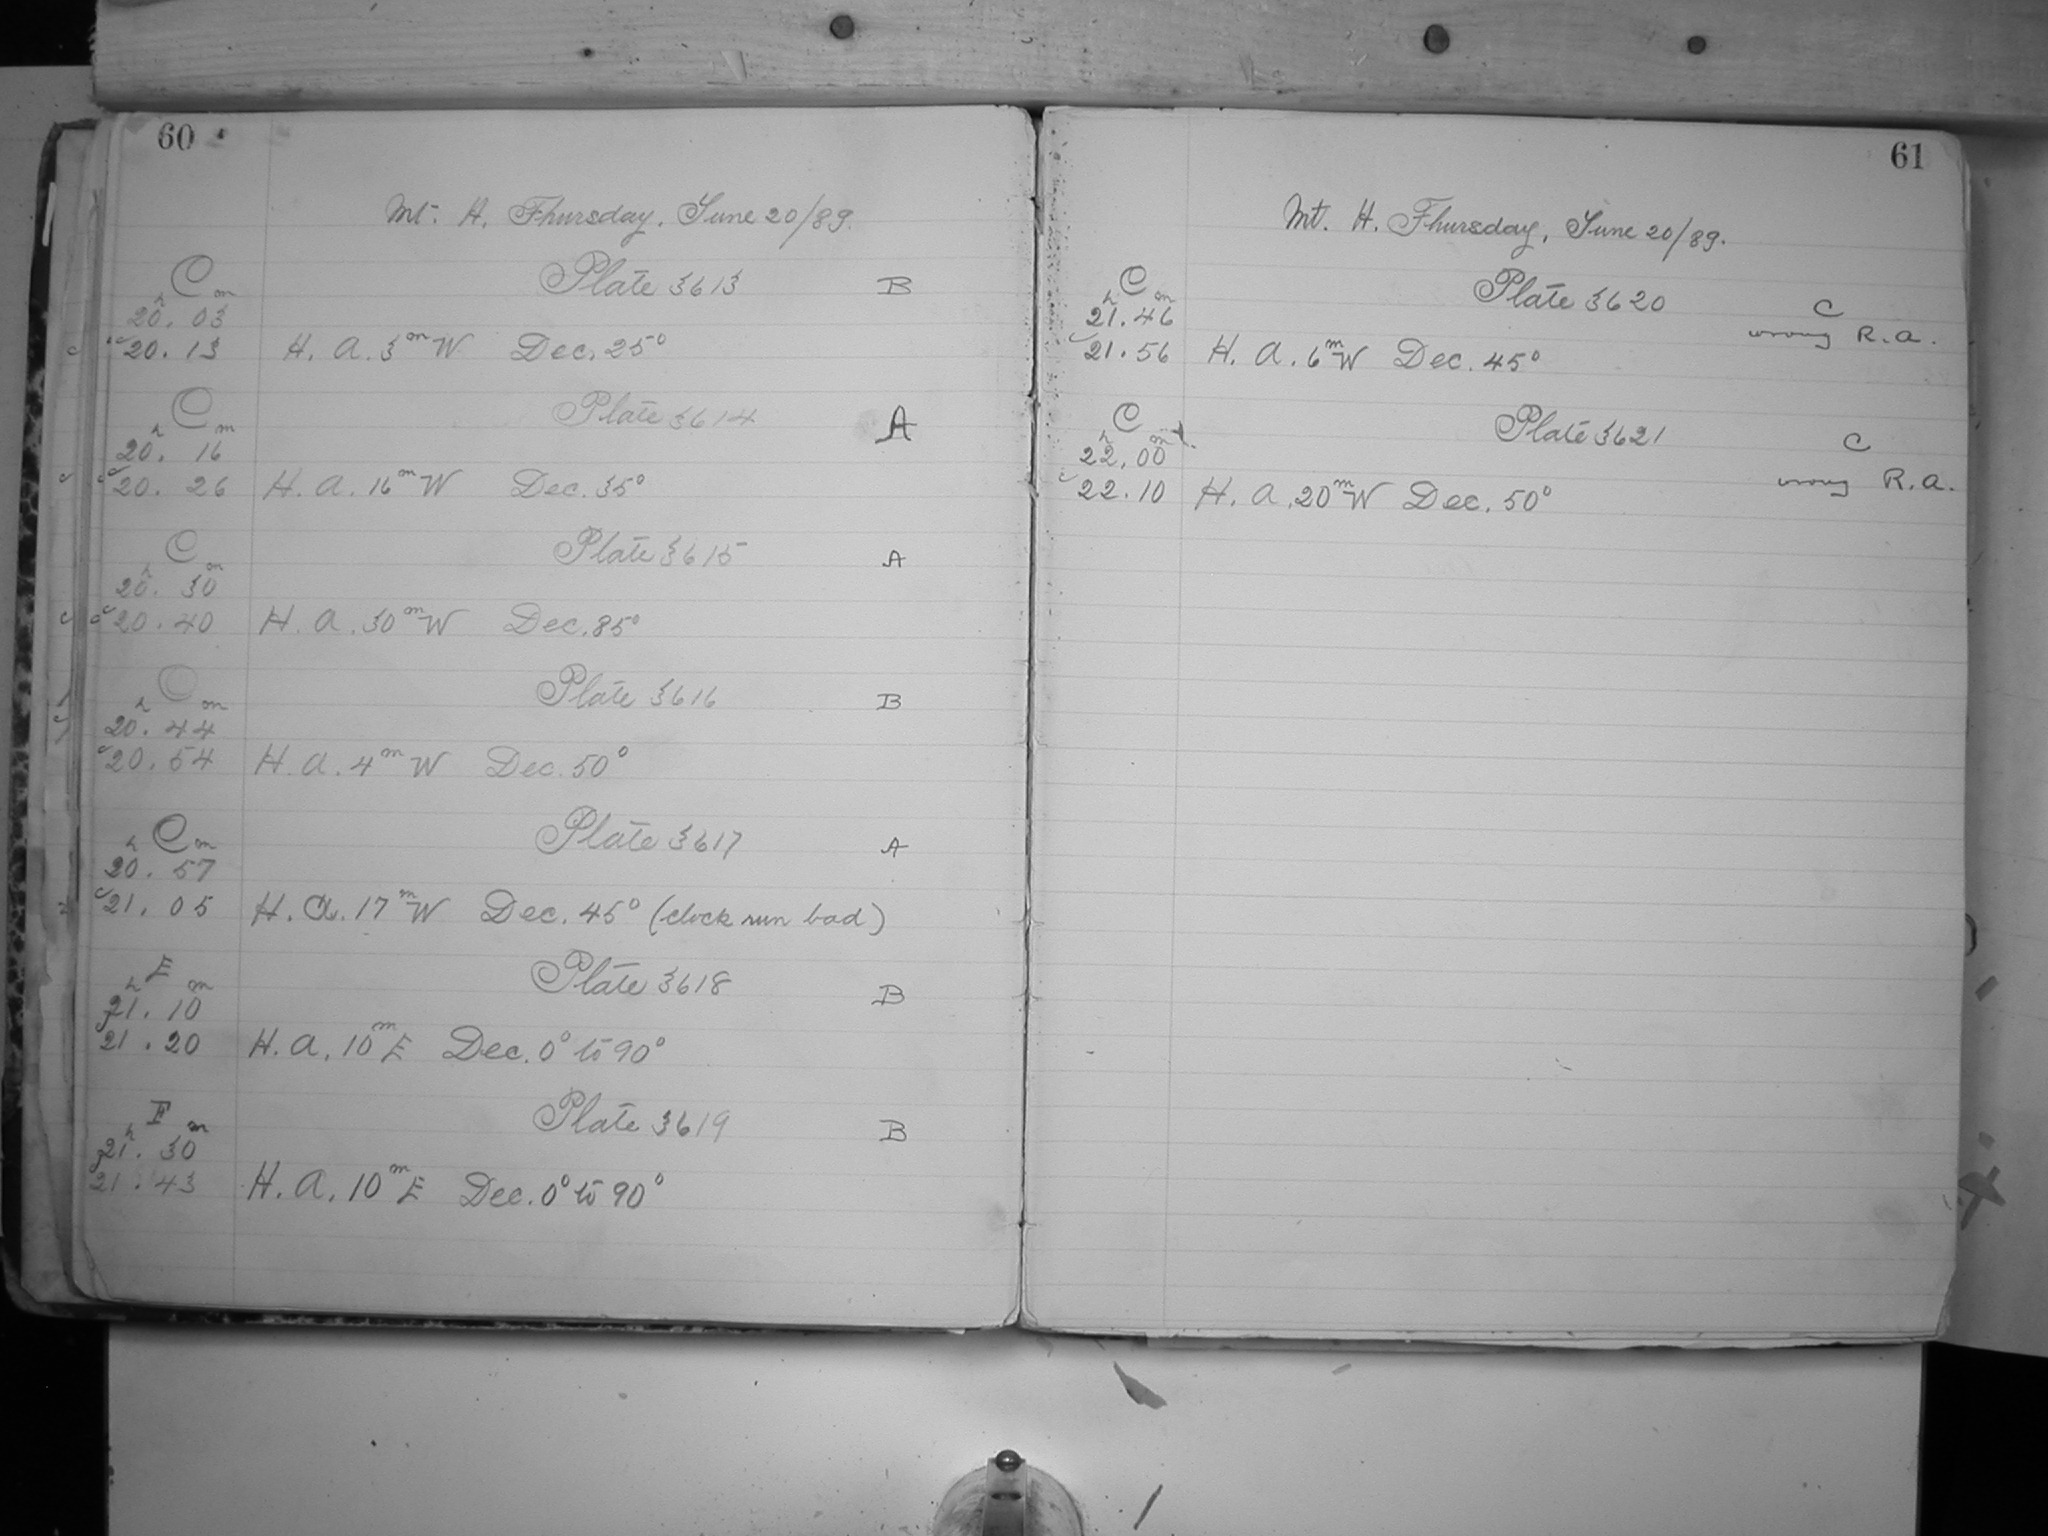 60
Mt. H. Thursday, June 20/89.
C Plate 3613 B
20h. 03m
20. 13 H. A. 3m W Dec. 25°
C Plate 3614 A
20h. 16m
20. 26 H. A. 16m W Dec. 35°
C Plate 3615 A
20h. 30m
20. 40 H. A. 30m W Dec. 85°
C Plate 3616 B
20h. 44m
20. 54 H. A. 4m W Dec. 50°
C Plate 3617 A
20h. 57m
21. 05 H. A. 17m W Dec. 45° (clock run bad)
E Plate 3618 B
21h. 10m
21. 20 H. A. 10m E Dec. 0° to 90°
F Plate 3619 B
21h. 30m
21. 43 H. A. 10m E Dec. 0° to 90°
61
Mt. H. Thursday, June 20/89.
C Plate 3620 C
21h. 46m wrong R.A.
21. 56 H. A. 6m W Dec. 45°
C Plate 3621 C
22h. 00m wrong R.A.
22. 10 H. A. 20m W Dec. 50°